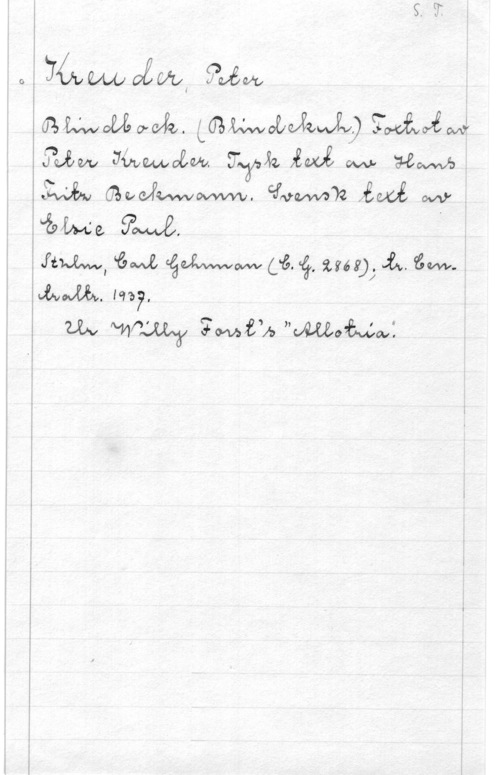 S. T.
Kreuder, Peter
Blindbock. (Blindekuh.) Foxtrot av
Peter Kreuder. Tysk text av Hans
Fritz Beckmann. Svensk text av
Elsie Paul.
Sthlm, Carl Gehrman (C. G. 2868); tr. Cen-
traltr. 1937.
Ur Willy Forst's "Allotria".